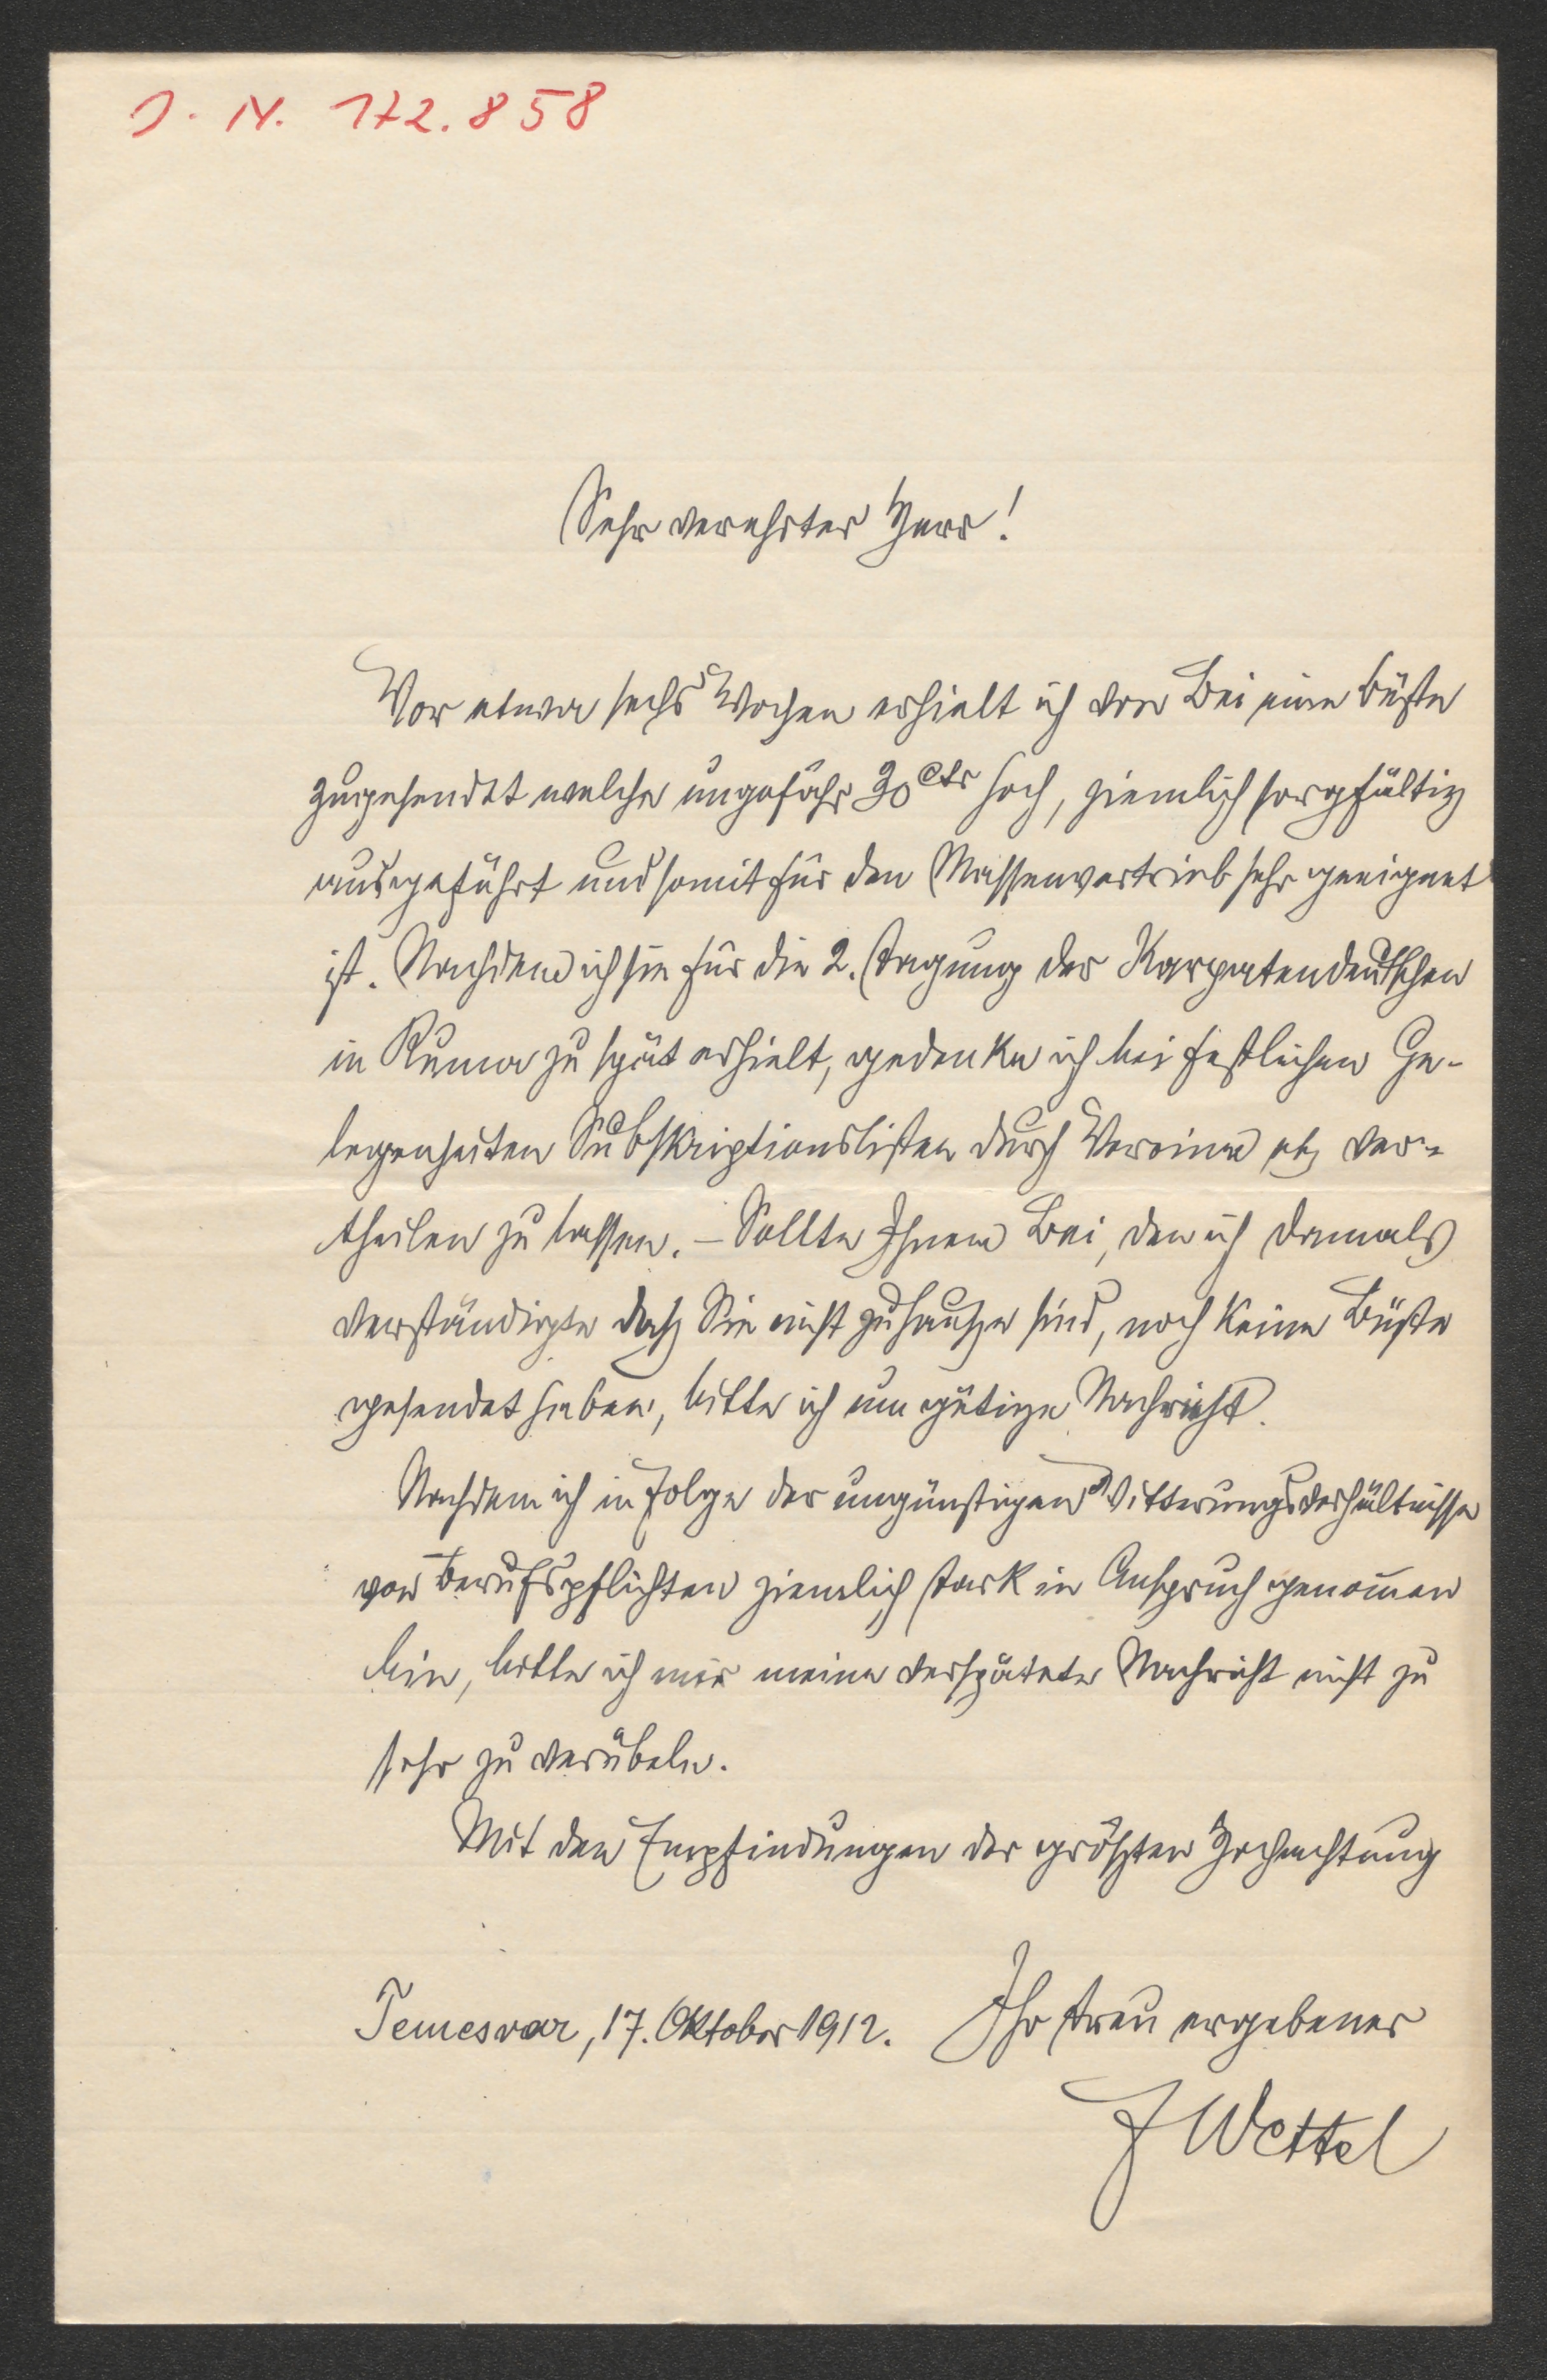 J. N. 172.858
Sehr verehrter Herr!
Vor etwa sechs Wochen erhielt ich von Bei eine Büste
zugesendet welche ungefähr 30 ctr hoch, ziemlich sorgfältig
ausgeführt und somit für den Massenvertrieb sehr geeignet
ist. Nachdem ich sie für die 2. Tagung der Karpatendeutschen
in Ruma zu spät erhielt, gedenke ich bei festlichen Ge-
legenheiten Subskriptionslisten durch Vereine etz ver-
theilen zu lassen. – Sollte Ihnen Bei, den ich damals
verständigte dasz Sie nicht zuhause sind, noch keine Büste
gesendet haben, bitte ich um gütige Nachricht.
Nachdem ich in Folge der ungünstigen Witterungsverhältnisse
von Berufspflichten ziemlich stark in Anspruch genom̄en
bin, bitte ich mir meine verspätete Nachricht nicht zu
sehr zu verübeln.
Mit den Empfindungen der gröszten Hochachtung
Temesvar, 17. Oktober 1912. Ihr treu ergebener
F Wettel